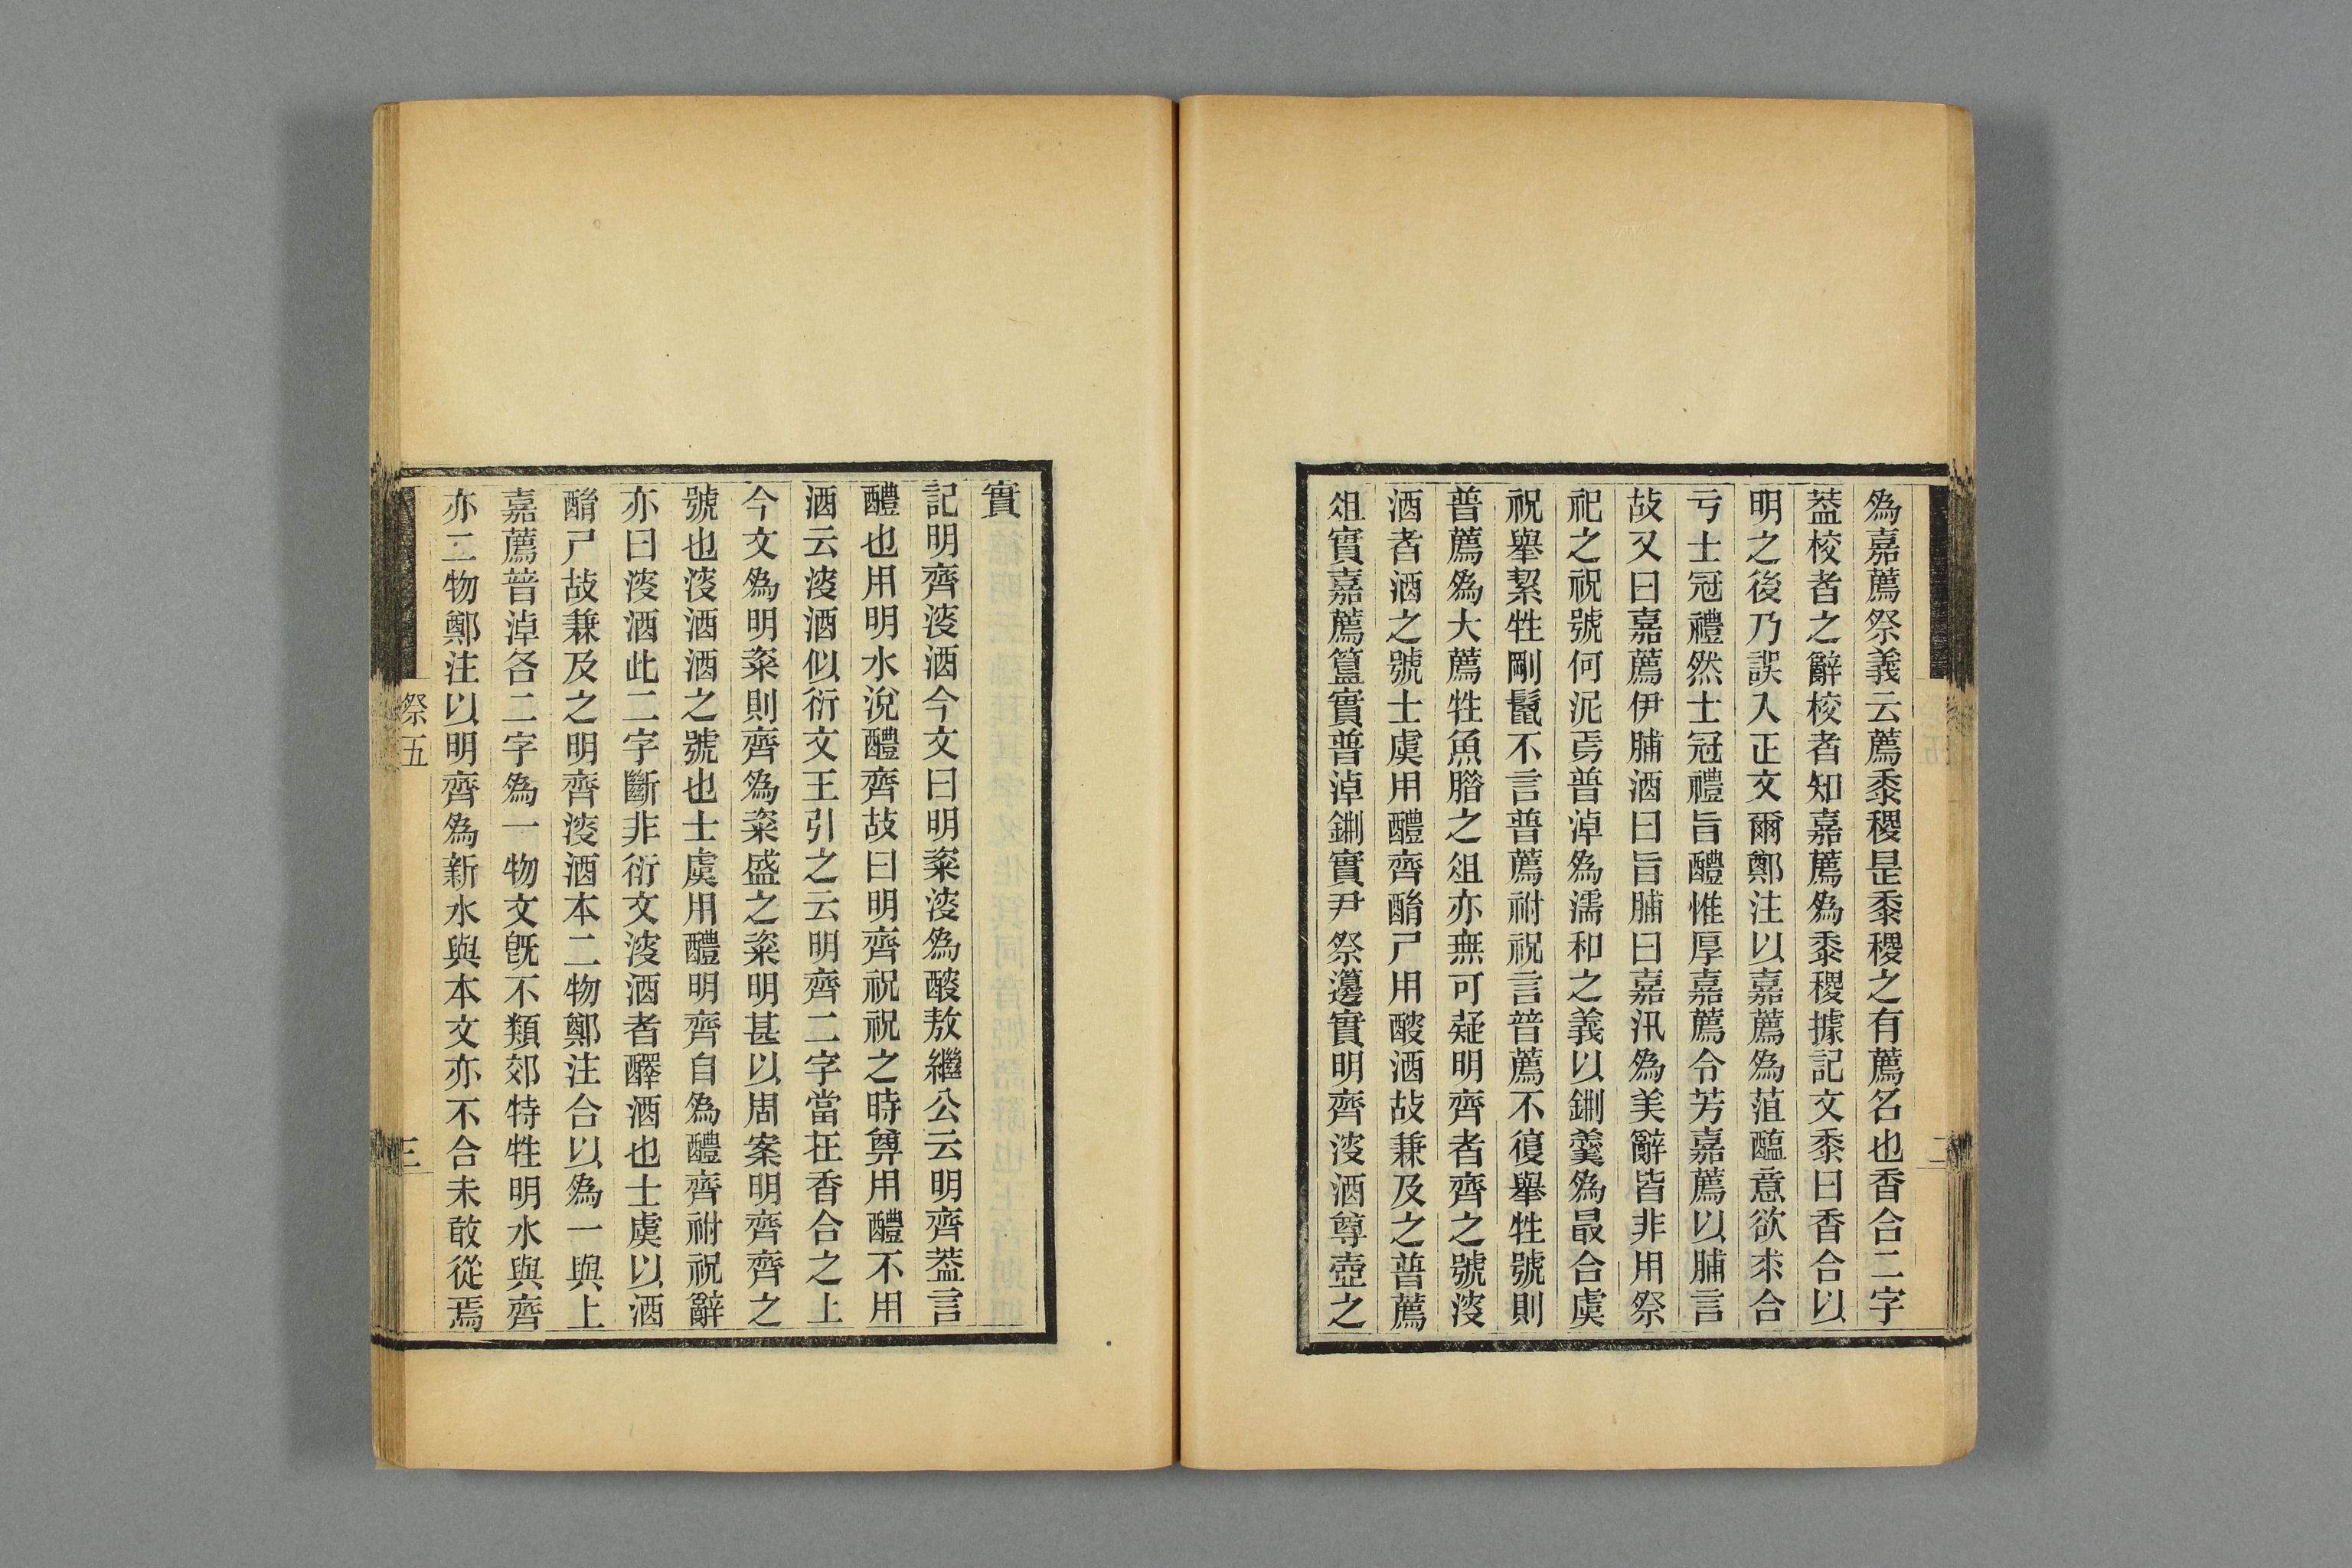 爲嘉薦祭義云薦黍稷是黍稷之有薦名也香合二字
葢校者之辭校者知嘉薦爲黍稷據記文黍曰香合以
明之後乃誤入正文爾鄭注以嘉薦爲菹醢意欲求合
亏士冠禮然士冠禮旨醴惟厚嘉薦令芳嘉薦以脯言
故又曰嘉薦伊脯酒曰旨脯曰嘉汎爲美辭皆非用祭
祀之祝號何泥焉普淖爲濡和之義以鉶羹爲最合虞
祝舉絜牲剛鬣不言普薦祔祝言普薦不復舉牲號則
普薦爲大薦牲魚腊之俎亦無可疑明齊者齊之號溲
酒者酒之號士虞用醴齊酳尸用酸酒故兼及之普薦
俎實嘉薦簋實普淖鉶實尹祭籩實明齊溲酒尊壺之
二
實
記明齊溲酒今文曰明粢溲爲酸敖繼公云明齊葢言
醴也用明水涗醴齊故曰明齊祝祝之時奠用醴不用
酒云溲酒似衍文王引之云明齊二字當在香合之上
今文爲明粢則齊爲粢盛之粢明甚以周案明齊齊之
號也溲酒酒之號也士虞用醴明齊自爲醴齊祔祝辭
亦曰溲酒此二字斷非衍文溲酒者醳酒也士虞以酒
酳尸故兼及之明齊溲酒本二物鄭注合以爲一與上
嘉薦普淖各二字爲一物文旣不類郊特牲明水與齊
亦二物鄭注以明齊爲新水與本文亦不合未敢從焉
祭五
三